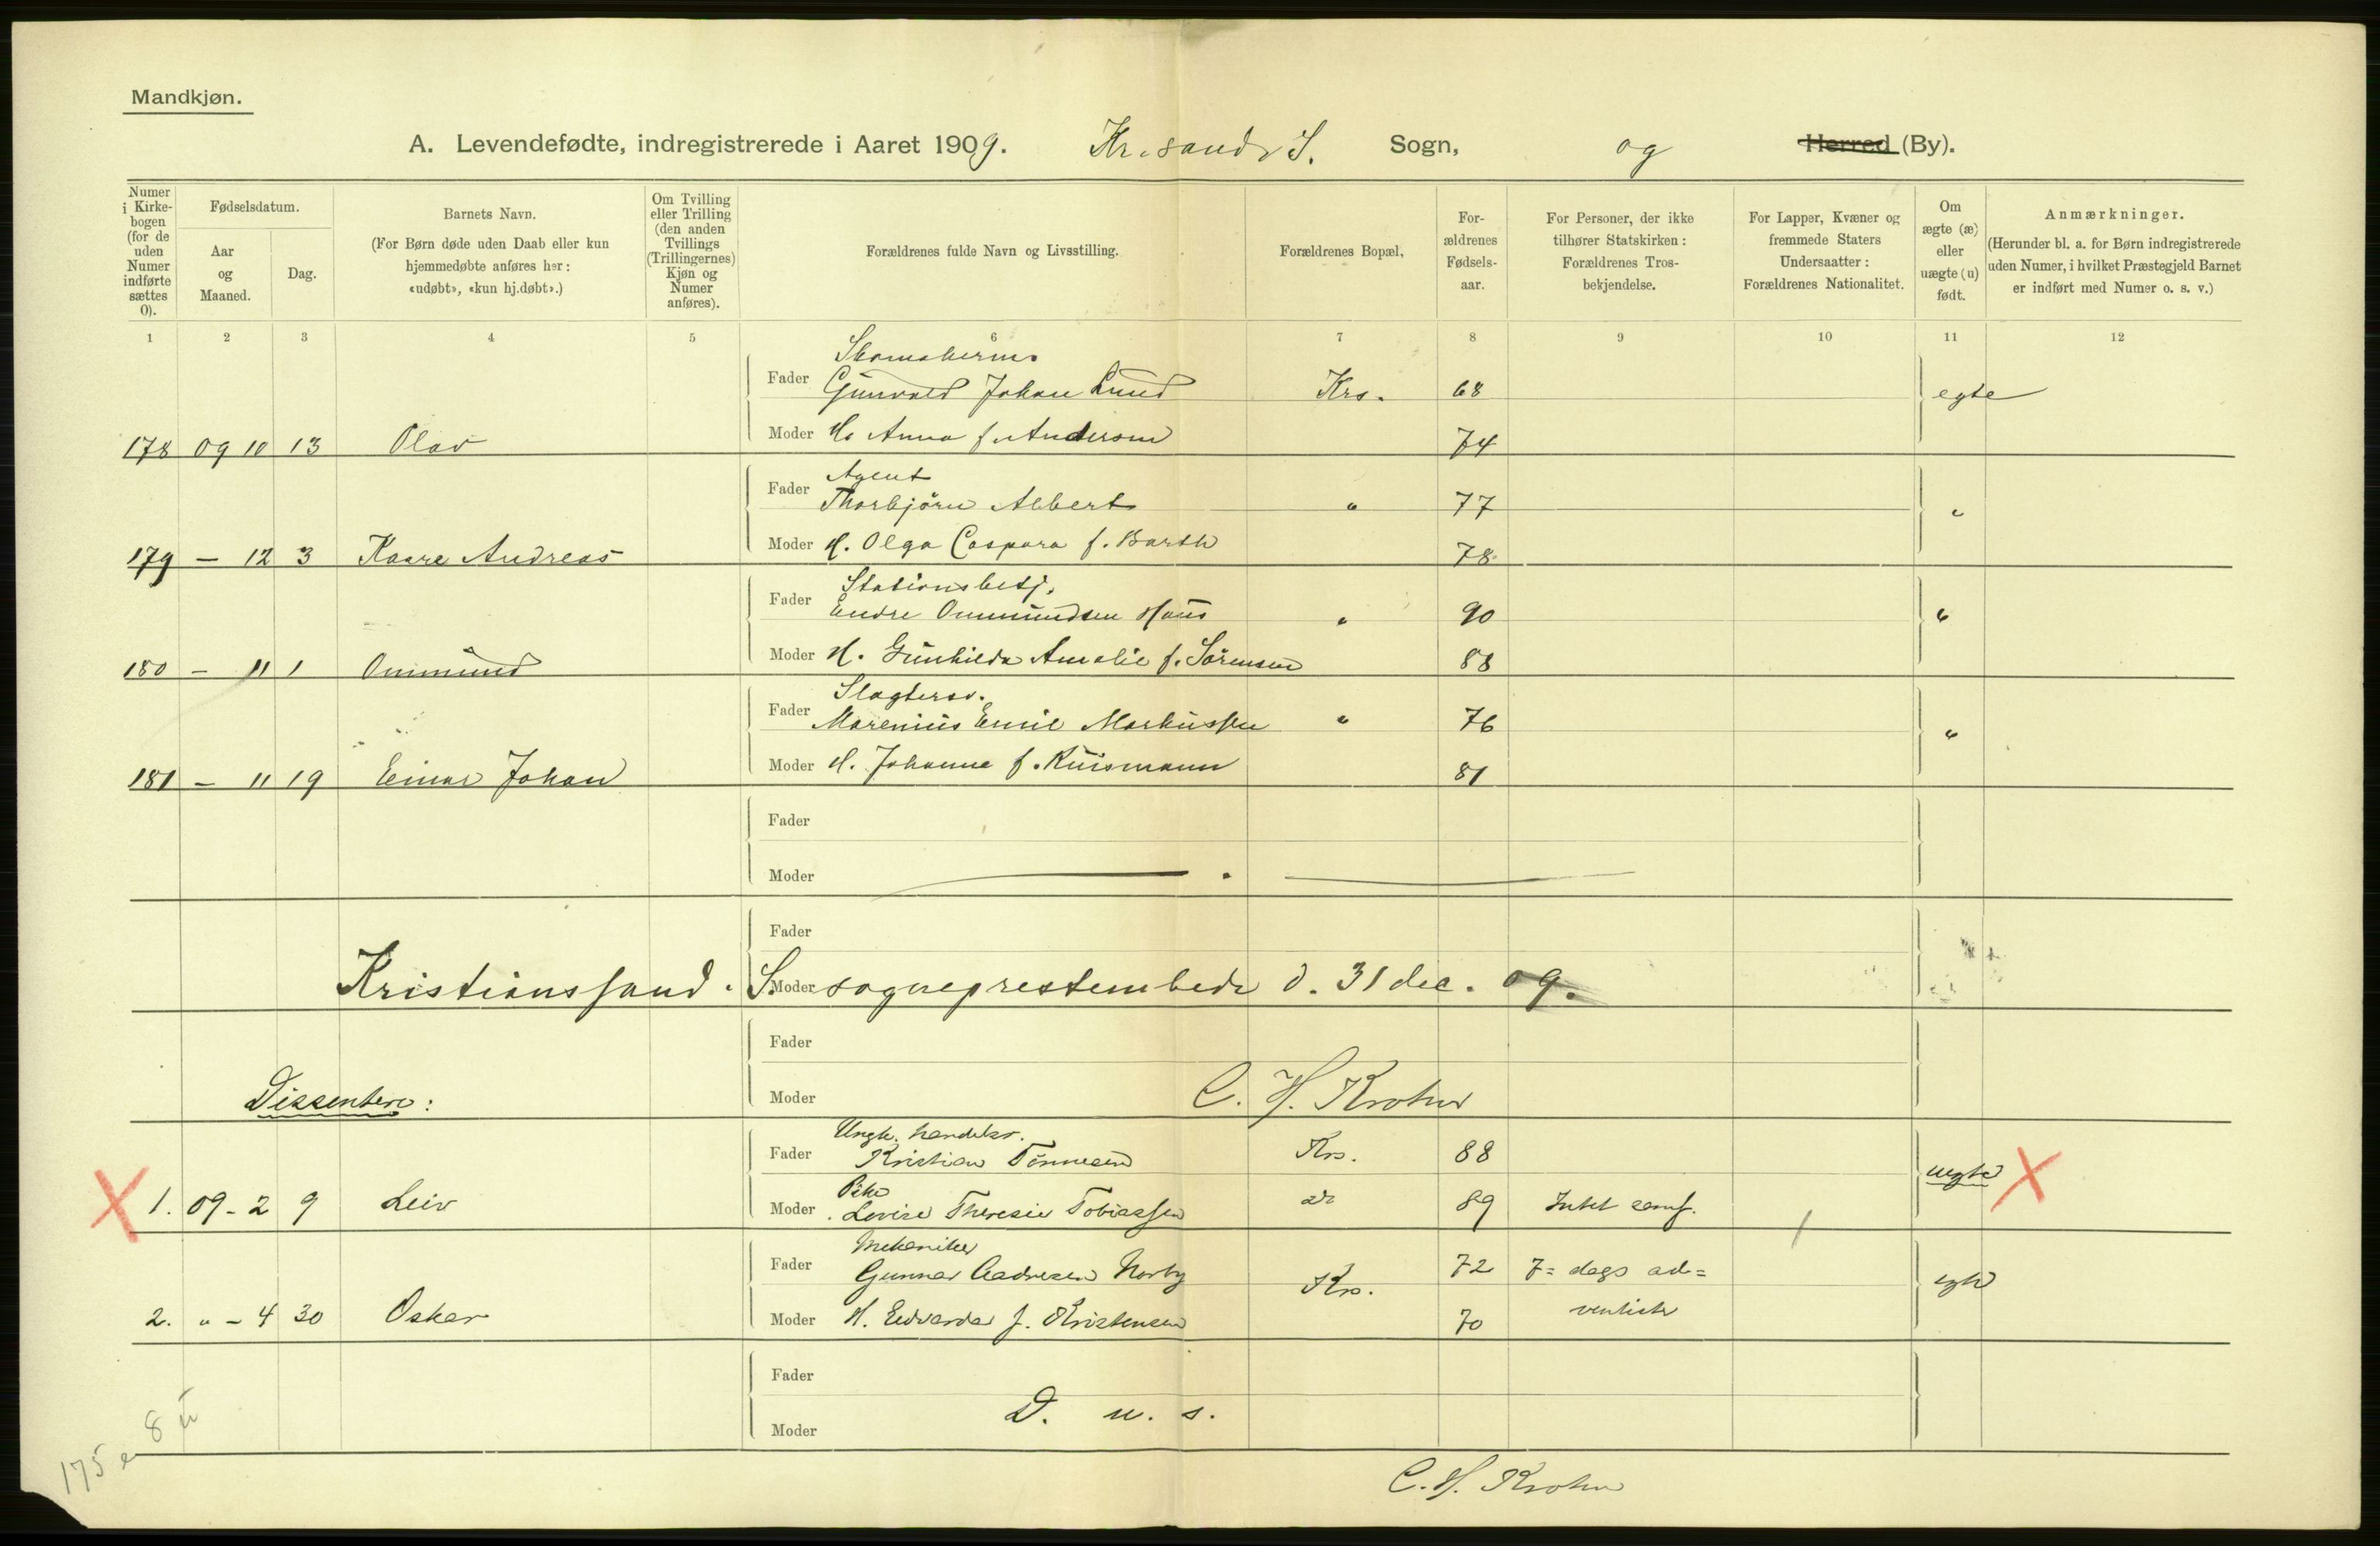 Mandkjøn.
A. Levendefødte, indregistrerede i Aaret 1909. Kr.sands S. Sogn, og Herred (By).
Numer i Kirkebogen (for de uden Numer indførte sættes 0).
Fødselsdatum.
Aar og Maaned.
Dag.
Barnets Navn.
(For Børn døde uden Daab eller kun hjemmedøbte anføres her: «udøbt», «kun hj.døbt».)
Om Tvilling eller Trilling (den anden Tvillings (Trillingernes) Kjøn og Numer anføres).
Forældrenes fulde Navn og Livsstilling.
Forældrenes Bopæl,
Forældrenes Fødselsaar.
For Personer, der ikke tilhører Statskirken: Forældrenes Trosbekjendelse.
For Lapper, Kvæner og fremmede Staters Undersaatter: Forældrenes Nationalitet.
Om ægte (æ) eller uægte (u) født.
Anmærkninger.
(Herunder bl. a. for Børn indregistrerede uden Numer, i hvilket Præstegjeld Barnet er indført med Numer o. s. v.)
1 2 3 4 5 6 7 8 9 10 11 12
Skomakerm.
Fader Gunvald Johan Lund Krs. 68 egte
178 09 10 13 Olav Moder H. Anna f. Andersen 74
Agent
Fader Thorbjörn Abbert " 77 "
179 — 12 3 Kaare Andreas Moder H. Olga Caspara f. Barth 78
Stationsbetj.
Fader Endre Ommundsen Haus " 90 "
180 — 11 1 Ommund Moder H. Gunhilda Amalie f. Sörensen 88
Slagtersv.
Fader Marenius Emil Markussen " 76 "
181 — 11 19 Einar Johan Moder H. Johanne f. Kuismann 81
Fader
Moder
Fader
Kristianssand. S. Moder sogneprestembede d. 31 dec. 09.
Fader
Dissentere: Moder C. H. Krohn
Ungk. handelsr.
Fader Kristian Tönnesen Krs. 88 uegte
Pike
1. 09 - 2 9 Leiv Moder Lovise Theresie Tobiassen do 89 Intet samf.
Mekaniker
Fader Gunnar Aadnesen Norby Krs. 72 7= dags ad= egte
2. " - 4 30 Oskar Moder H. Edvarda f. Kristensen 70 ventister
Fader
Moder D. u. s.
8 u
175 e
C. H. Krohn